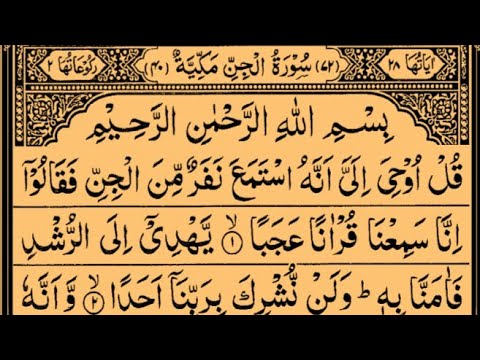 اٰيَاتُهَا ٢٨ (٧٢) سُوْرَةُ الْجِنِّ مَكِّيَّةٌ (٤٠) رُكُوْعَاتُهَا ٢
بِسْمِ اللهِ الرَّحْمٰنِ الرَّحِيْمِ
قُلْ اُوْحِيَ اِلَيَّ اَنَّهُ اسْتَمَعَ نَفَرٌ مِّنَ الْجِنِّ فَقَالُوْۤا
اِنَّا سَمِعْنَا قُرْاٰنًا عَجَبًا ۙ﴿١﴾ يَّهْدِيْۤ اِلَى الرُّشْدِ
فَاٰمَنَّا بِهٖ ؕ وَلَنْ نُّشْرِكَ بِرَبِّنَاۤ اَحَدًا ۙ﴿٢﴾ وَّاَنَّهٗ